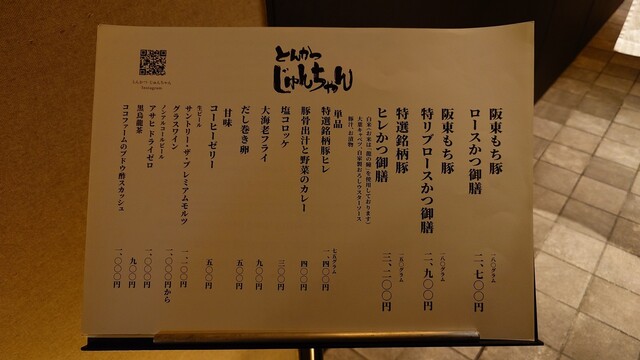 とんかつ じゅんちゃん
Instagram
とんかつ
じゅんちゃん
阪東もち豚
ロースかつ御膳
一八〇グラム
二、七〇〇円
阪東もち豚
特リブロースかつ御膳
一八〇グラム
二、九〇〇円
特選銘柄豚
ヒレかつ御膳
一五〇グラム
三、二〇〇円
白米(お米は「龍の瞳」を使用しております)
大葉キャベツ、自家製おろしウスターソース
豚汁、お漬物
単品
特選銘柄豚ヒレ
七五グラム
一、四〇〇円
豚骨出汁と野菜のカレー
四〇〇円
塩コロッケ
三〇〇円
大海老フライ
九〇〇円
だし巻き卵
五〇〇円
甘味
コーヒーゼリー
五〇〇円
生ビール
サントリー・ザ・プレミアムモルツ
一、一〇〇円
グラスワイン
一、〇〇〇円から
ノンアルコールビール
アサヒ ドライゼロ
一、〇〇〇円
黒烏龍茶
九〇〇円
ココファームのブドウ酢スカッシュ
一、〇〇〇円